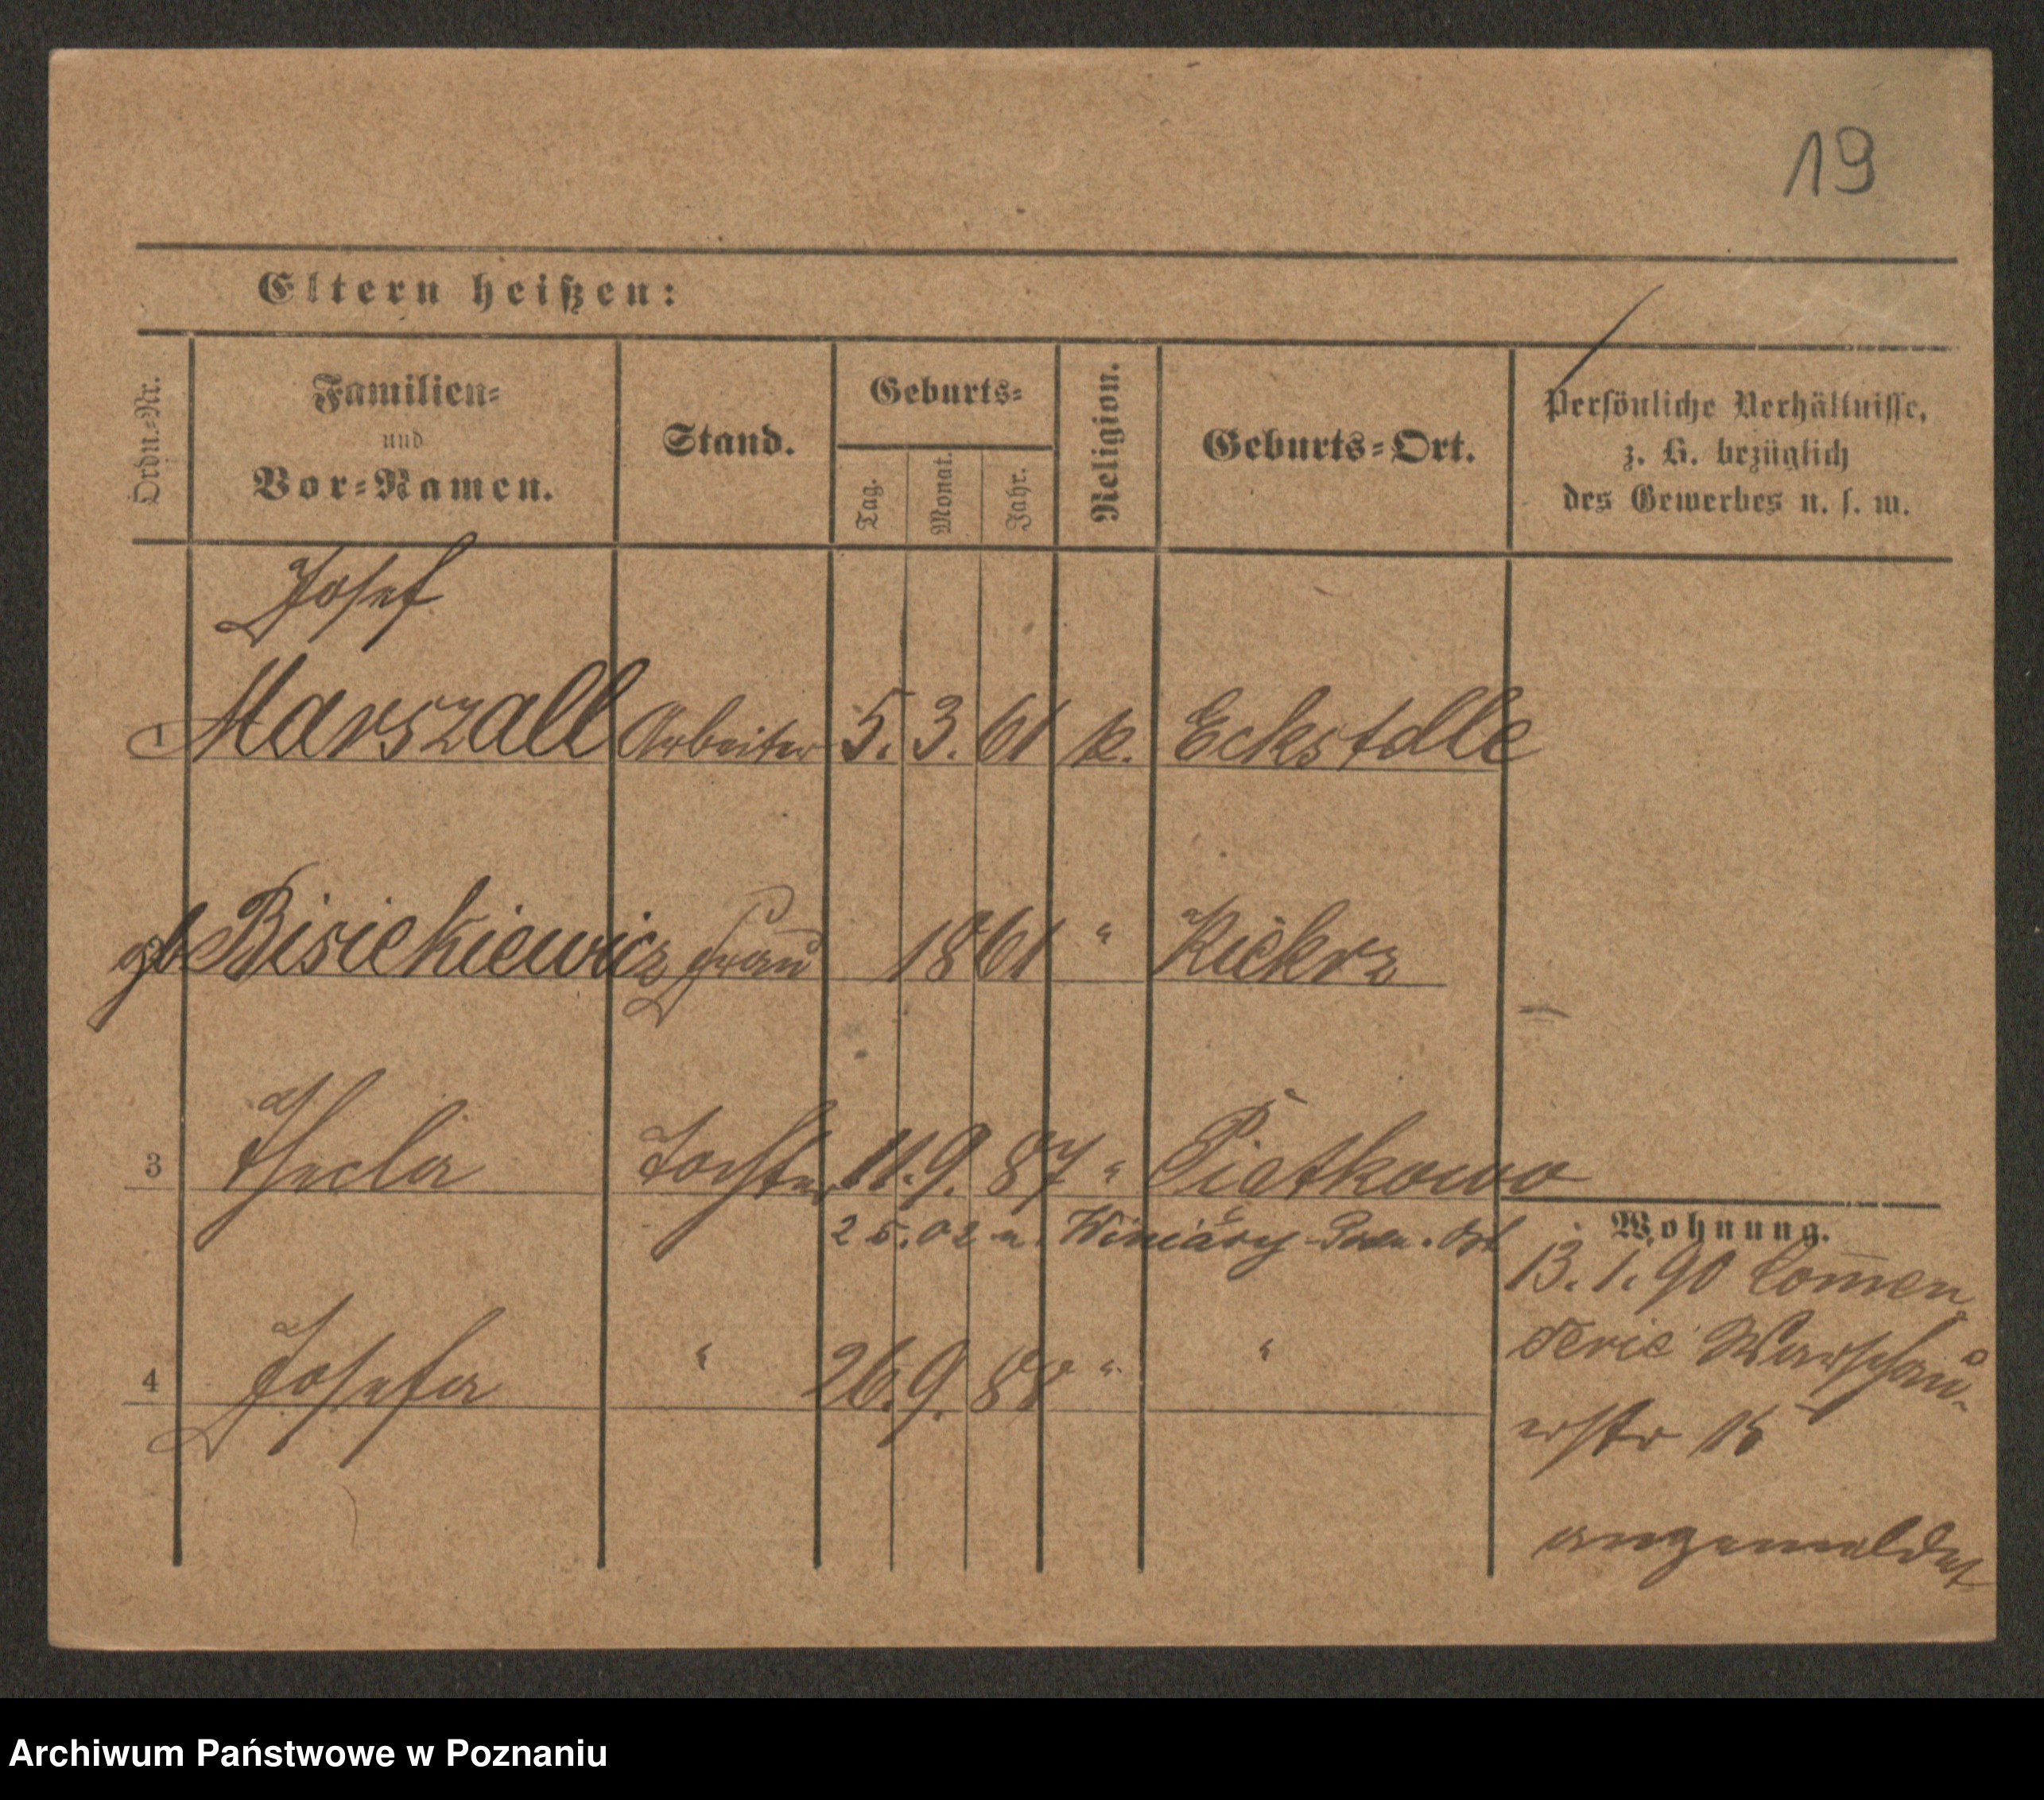 19
Eltern heißen:
Ordn.-Nr.
Familien-
und
Vor-Namen.
Stand.
Geburts-
Tag.
Monat.
Jahr.
Religion.
Geburts-Ort.
Persönliche Verhältnisse,
z. B. bezüglich
des Gewerbes u. s. w.
Josef
1 Marszall Arbeiter 5. 3. 61 k. Eckstelle
gb Bisiekiewicz Frau 1861 " Kiekrz
3 Thecla Tochter 11. 9. 87 " Piątkowo
25.02 n. Winiary
4 Josefa " 26. 9. 88 " "
Wohnung.
13. 1. 90 Com̅en
derie Warschau-
erstr 15
angemeldet
Archiwum Państwowe w Poznaniu